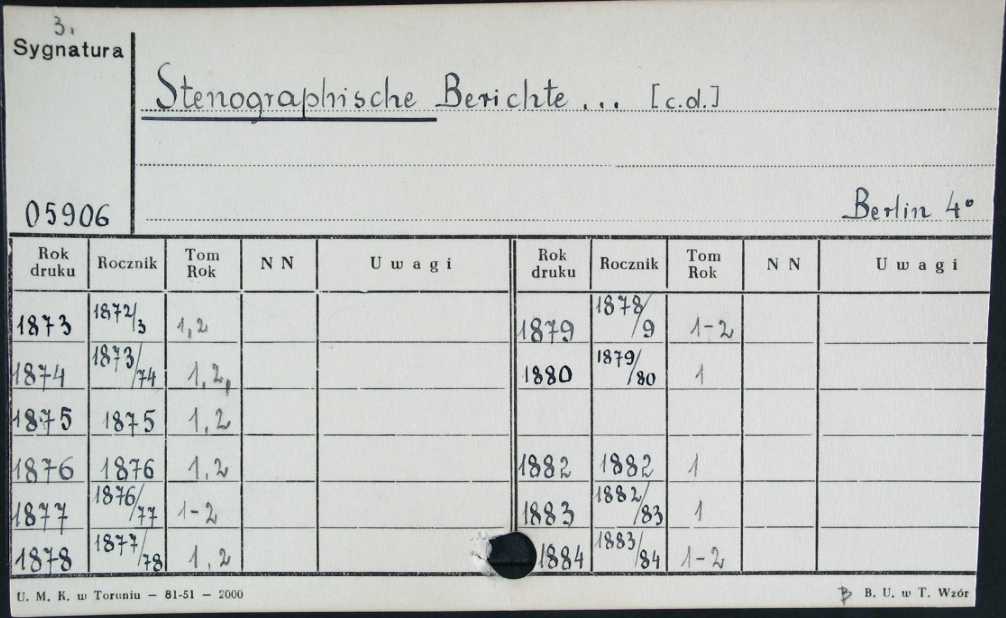 3.
Sygnatura
Stenographische Berichte ... [c.d.]
05906
Berlin 4°
Rok druku Rocznik Tom Rok NN Uwagi Rok druku Rocznik Tom Rok NN Uwagi
1873 1872/3 1,2 1879 1878/9 1-2
1874 1873/74 1,2, 1880 1879/80 1
1875 1875 1,2
1876 1876 1,2 1882 1882 1
1877 1876/77 1-2 1883 1882/83 1
1878 1877/78 1,2 1884 1883/84 1-2
U. M. K. w Toruniu — 81-51 — 2000 B. U. w T. Wzór